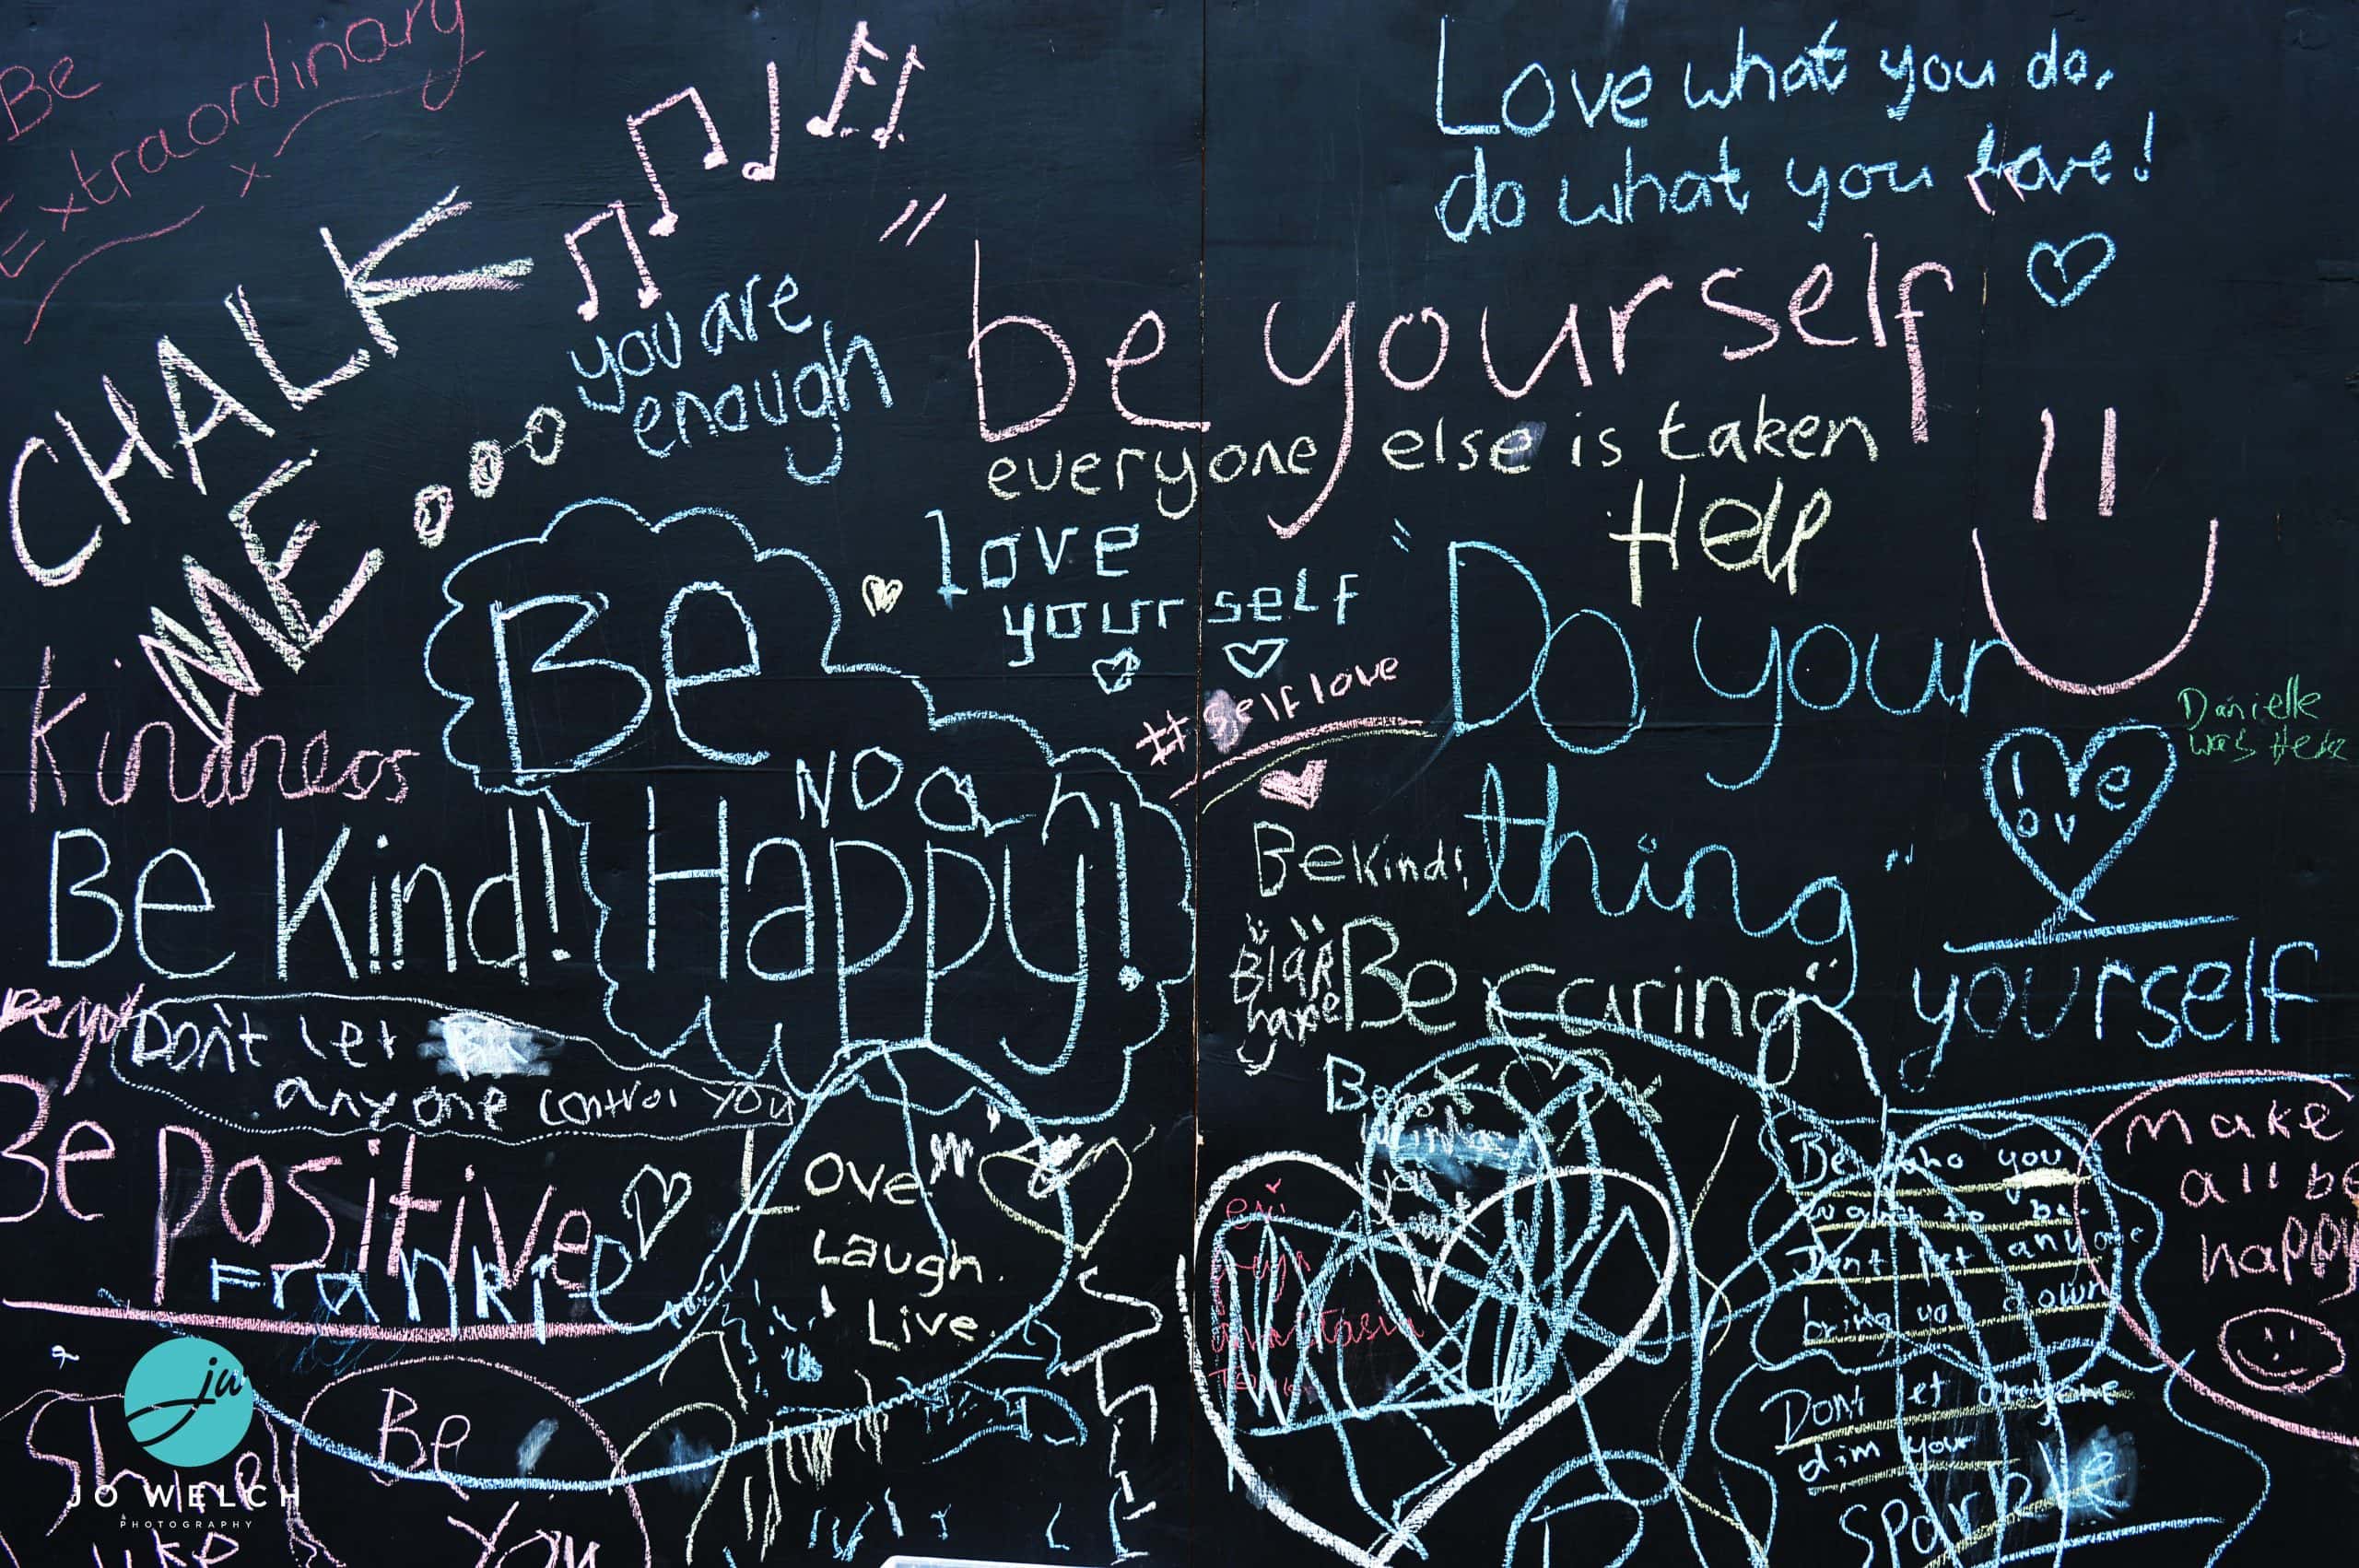 Be
Extraordinary
CHALK
ME
you are
enough
Love what you do,
do what you love!
"be yourself
everyone else is taken
Help
love
yourself
#selflove
"Do your
thing"
Danielle
was Here
love
yourself
Kindness
Be
NOah
Happy!
Be Kind!
BeKind!
Be caring
Don't let
anyone control you
Be positive
Frankie
Love
Laugh.
Live.
Be who you
want to be.
Dont let anyone
bring you down
Dont let anyone
dim your
sparkle
Make
all be
happy
Shine
like
Be
You
jw
JO WELCH
PHOTOGRAPHY